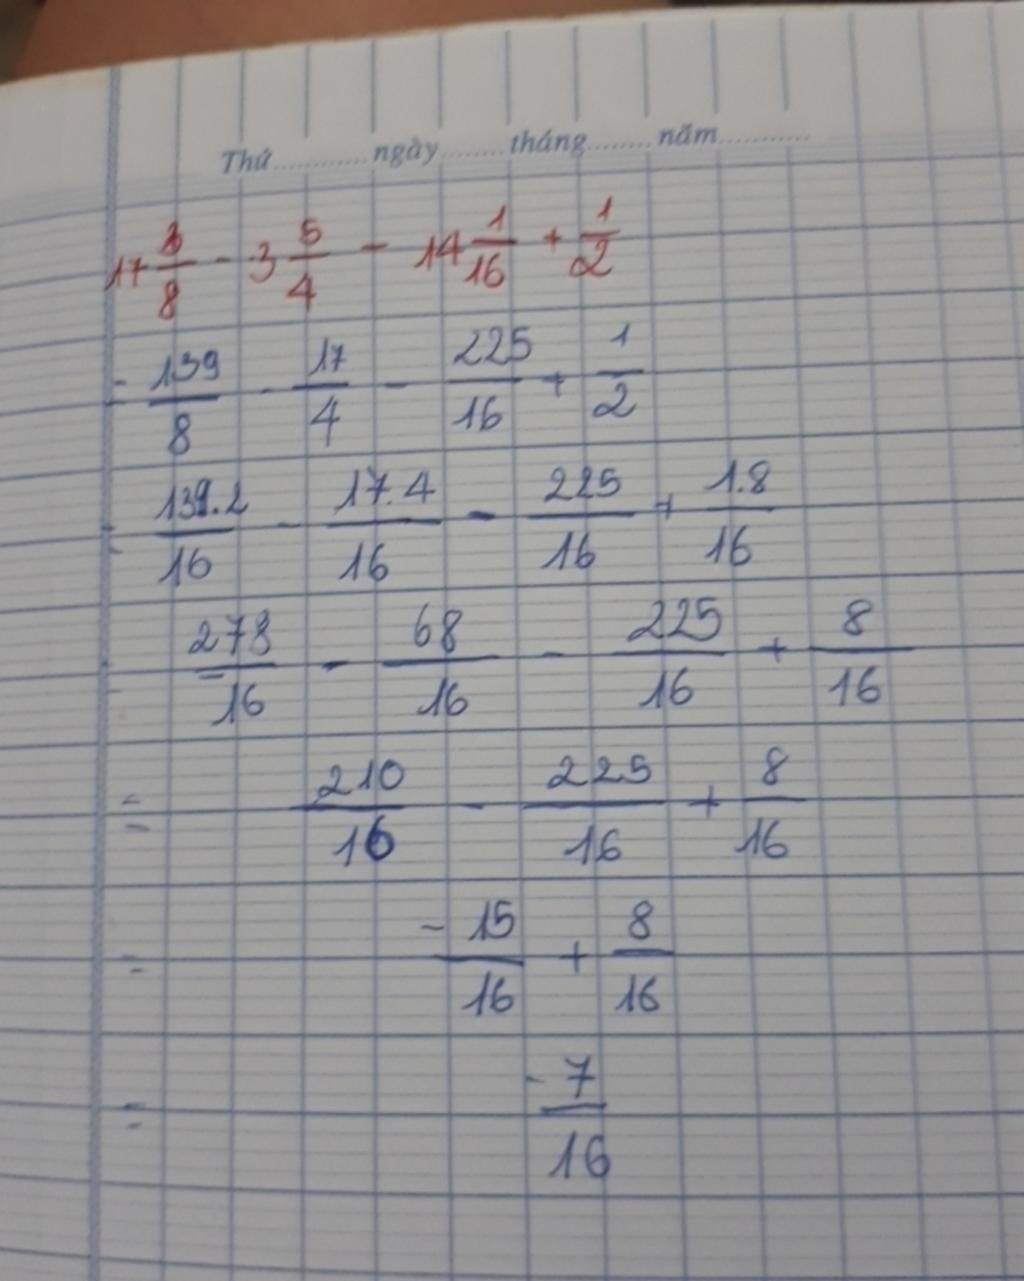 Thứ............ngày........tháng........năm............
17 3/8 - 3 5/4 - 14 1/16 + 1/2
= 139/8 - 17/4 - 225/16 + 1/2
= 139.2/16 - 17.4/16 - 225/16 + 1.8/16
= 278/16 - 68/16 - 225/16 + 8/16
= 210/16 - 225/16 + 8/16
= -15/16 + 8/16
= -7/16